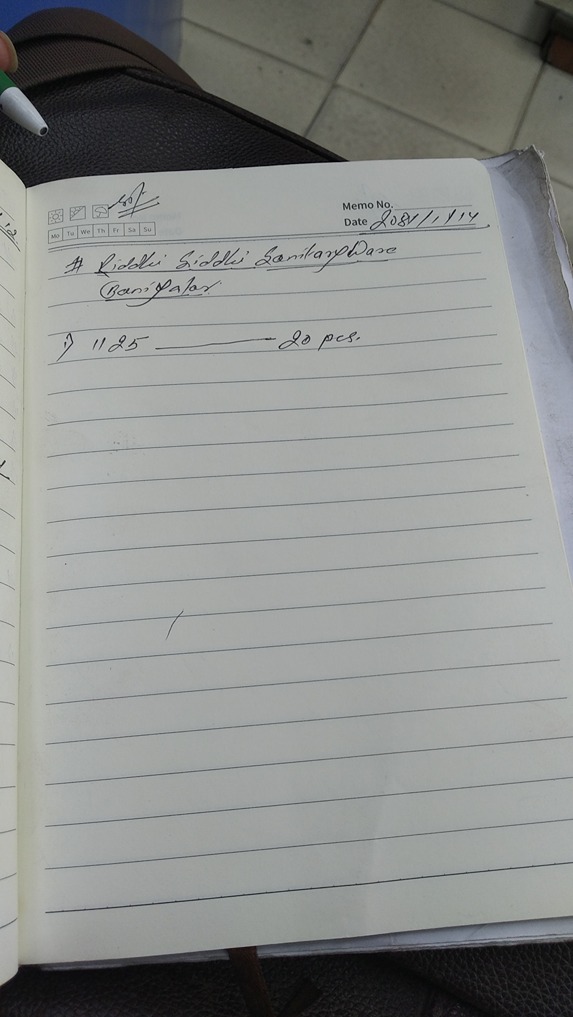 Memo No.
Date 2081/1/14
Mo Tu We Th Fr Sa Su
# Riddhi Siddhi Sanitary Ware
Baniyatar
1) 1125 — 20 pcs.